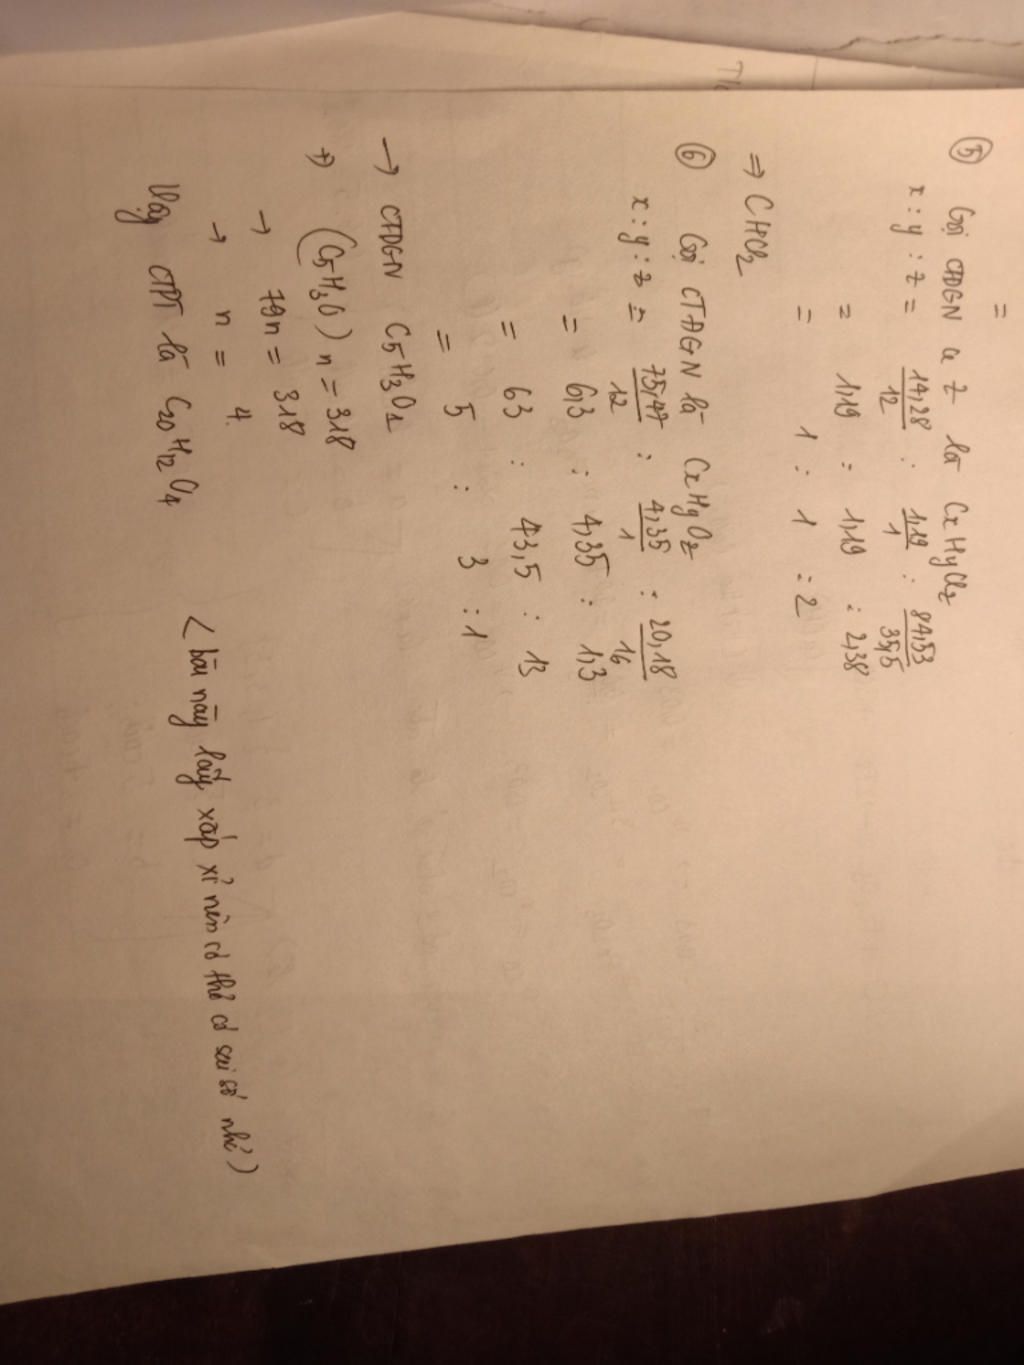 =
⑤ Gọi CTĐGN củ Z là CxHyClz
x : y : z = 14,28/12 : 1,19/1 : 84,53/35,5
= 1,19 : 1,19 : 2,38
= 1 : 1 : 2
⇒ CHCl2
⑥ Gọi CTĐGN là CxHyOz
x : y : z = 75,47/12 : 4,35/1 : 20,18/16
= 6,3 : 4,35 : 1,3
= 63 : 43,5 : 13
= 5 : 3 : 1
→ CTĐGN C5H3O1
+) (C5H3O)n = 318
→ 79n = 318
→ n = 4
Vậy CTPT là C20H12O4
(bài này lấy xấp xỉ nên có thể có sai số nhỏ)